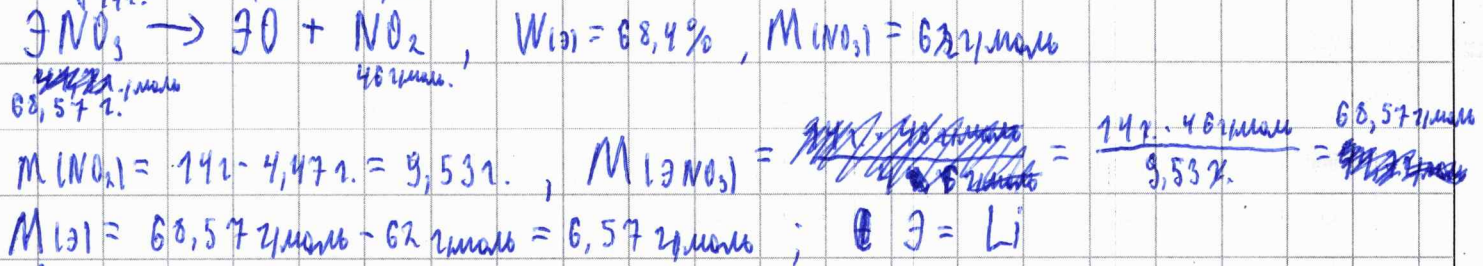 ЭNO₃ → ЭO + NO₂, W(Э) = 68,4%, M(NO₃) = 62 г/моль
68,57 г. 46 г/моль.
m(NO₂) = 14г - 4,47 г. = 9,53 г., M(ЭNO₃) = = 14 г. · 46 г/моль / 9,53 г. = 68,57 г/моль
M(Э) = 68,57 г/моль - 62 г/моль = 6,57 г/моль ; Э = Li